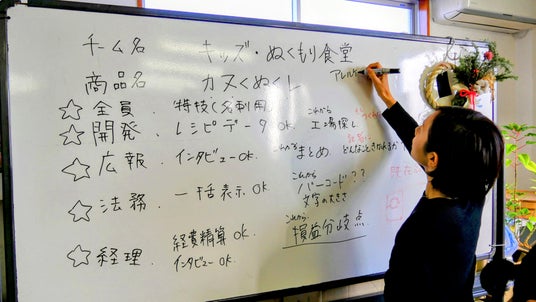 チーム名 キッズ・ぬくもり食堂
商品名 カヌくぬくし アレルゲ
☆全員. 特技(名刺用)
☆開発. レシピデータOK. これから 工場探し
☆広報. インタビューOK. これから まとめ. どんなことをきかれるか
☆法務. 一括表示OK これから バーコード??
文字の大きさ
☆経理. 経費精算OK これから 損益分岐点
インタビューOK.